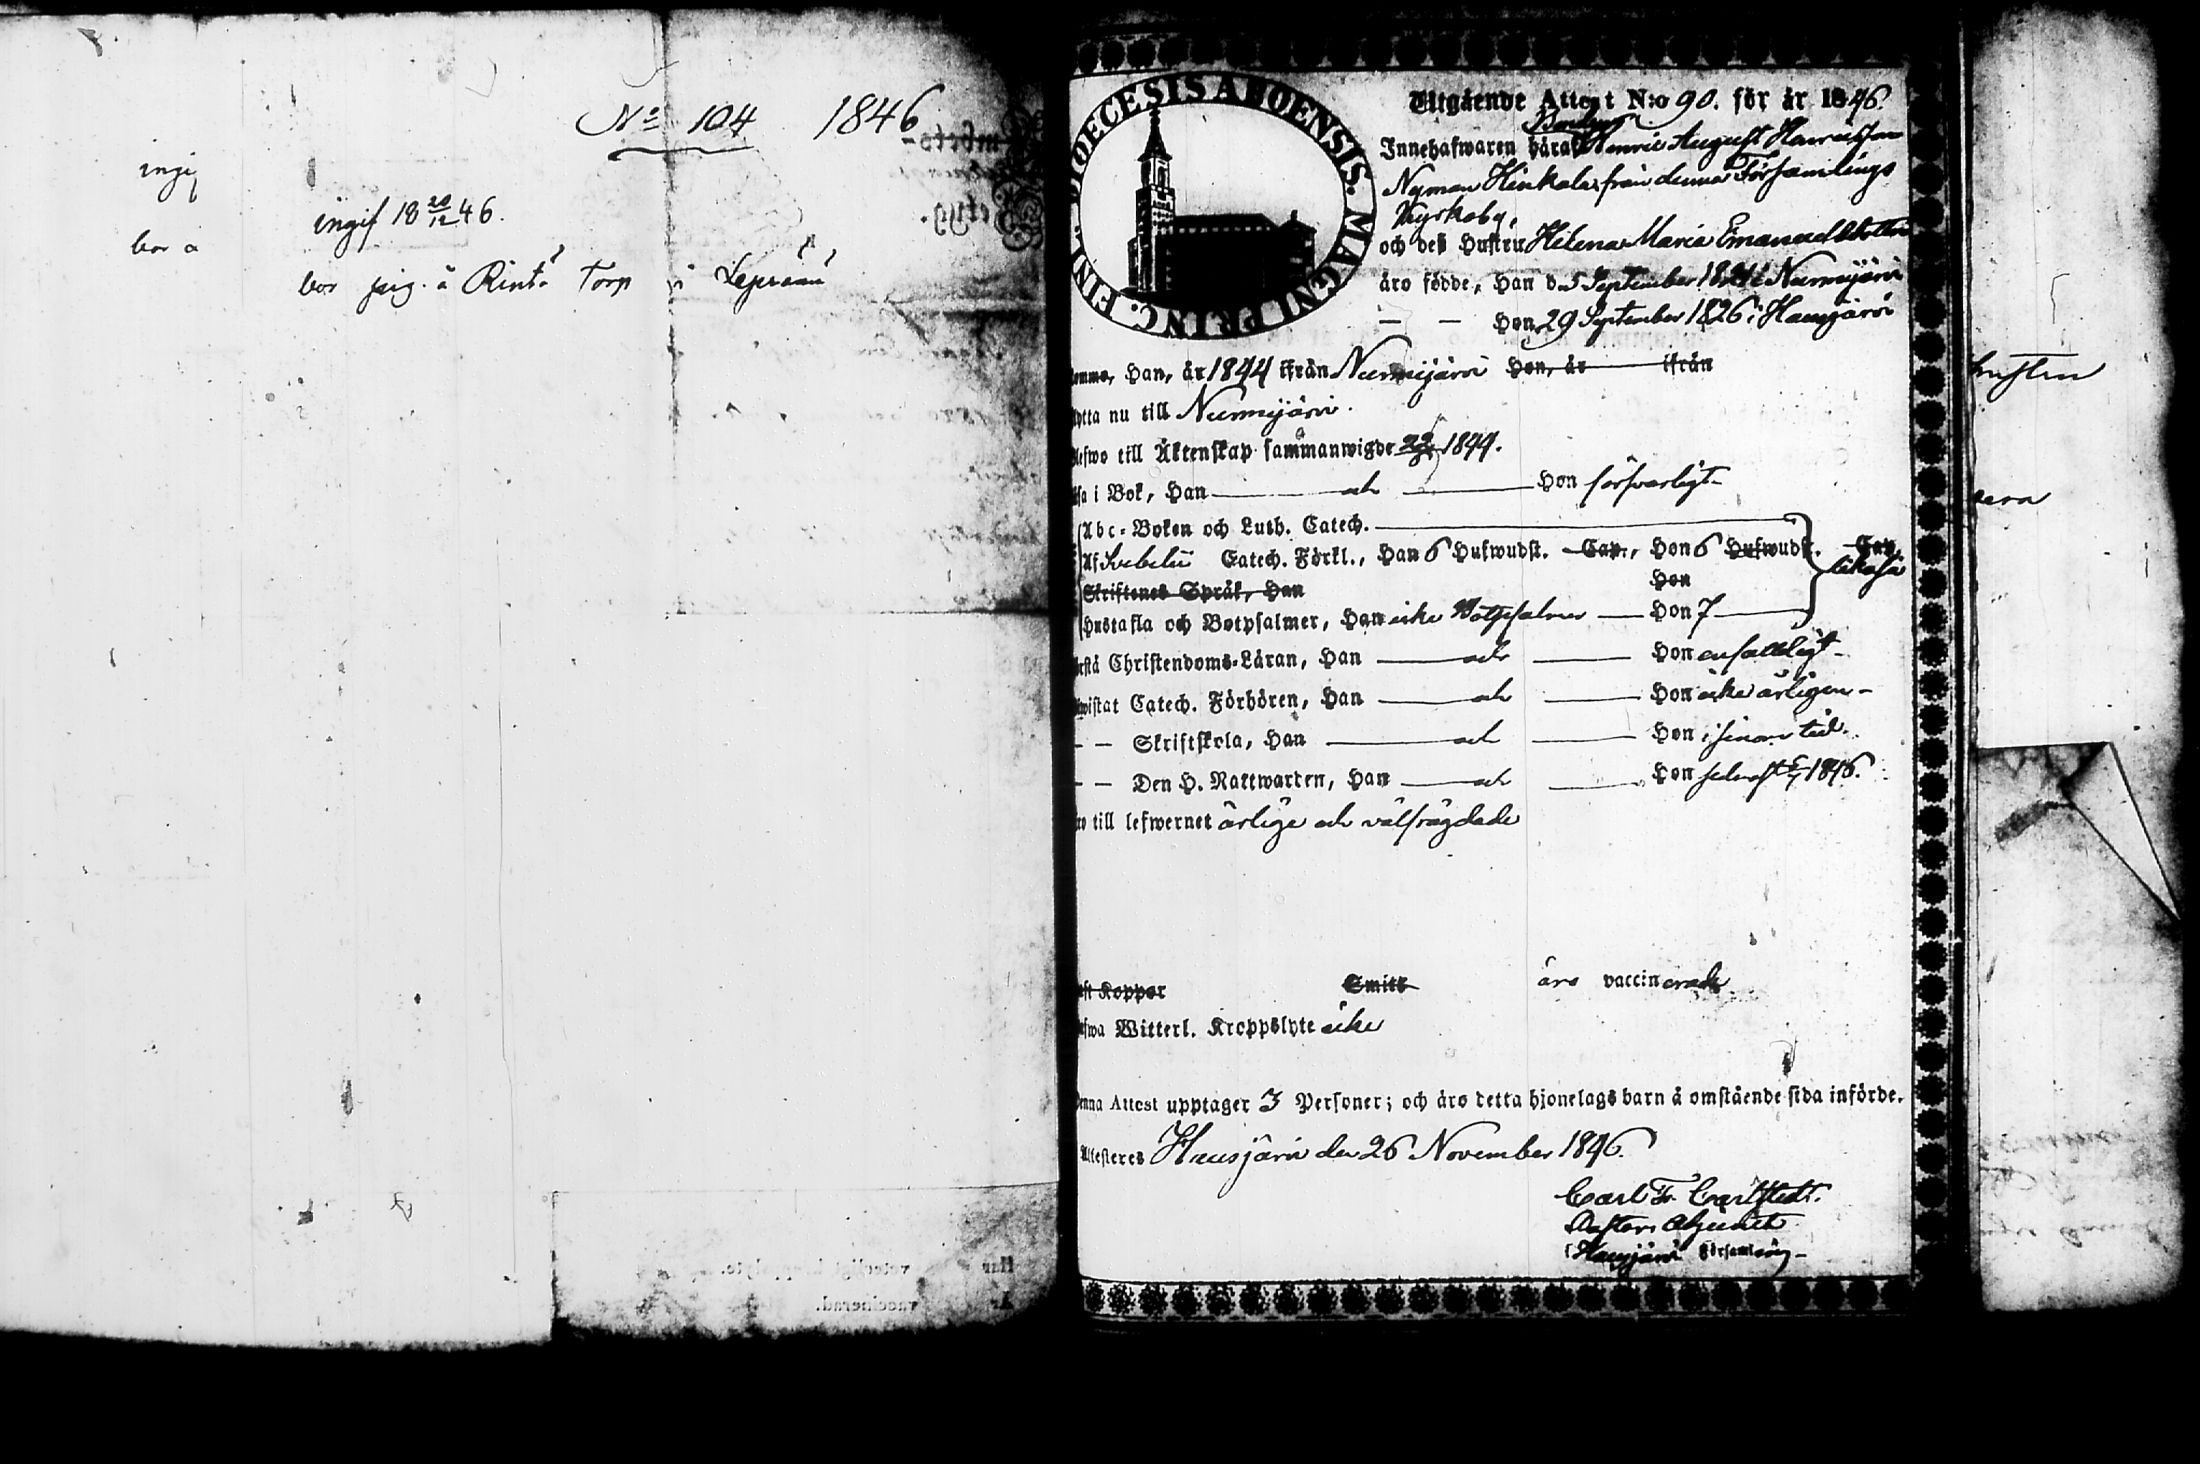 No 104 1846
ingif
ingif 18 20/12 46.
bor a
bor pig. å Rint. Torp i Lepsämä
DIOECESIS ABOENSIS. MAGNI PRINC. FINL.
Utgående Attest N:o 90. för år 1846.
Innehafwaren häraf Henric August Henricsson
Nyman Hinkala från denna Församlings
Kyrkoby,
och deß Hustru Helena Maria Emanuelsdotter
äro födde, Han d. 5 September 1821 i Nurmijärvi
— — Hon 29 September 1826 i Hausjärvi
komme, Han, år 1844 ifrån Nurmijärvi Hon, år ifrån
flytta nu till Nurmijärvi.
blefwo till Äktenskap sammanwigde 1844.
läsa i Bok, Han och Hon försvarligt
Abc-Boken och Luth. Catech.
Af Svebelii Catech. Förkl., Han 6 Hufwudst. Cap., Hon 6 Hufwudst. Cap.
Skriftenes Språk, Han Hon
Hustafla och Botpsalmer, Han icke Botpsalmer — Hon 7
förstå Christendoms-Läran, Han och Hon enfalldigt
bewistat Catech. Förhören, Han och Hon icke årligen
— — Skriftskola, Han och Hon i sinom tid
— — Den H. Nattwarden, Han och Hon senast 1846.
äro till lefwernet ärlige och välfrägdade
haft Koppor Smitt äro vaccinerade
hafwa Witterl. Kroppslyte icke
Denna Attest upptager 3 Personer; och äro detta hjonelags barn å omstående sida införde.
Attesteres Hausjärvi den 26 November 1846.
Carl Fr. Carlstedt.
Pastors Adjunct
i Hausjärvi Församling